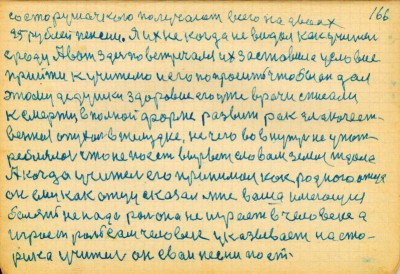 166.
со старушачкого получают всего на двоих
25 рублей пенсии. Я их не когда не видал как учител
сроду. А вот здесь встречали их заставила условие
прийти к учителю и его попросить чтобы он дал
этому дедушки здоровие его уже врачи списали
к смерти в полной форме развит рак злокачест-
венной опухол в желудке, не чего во внутрь не упот-
реблял что не поест вырвет словам земли ждала
А когда учител его принимал как родного отца
он ему как отцу сказал мне ваша имеющия
болят не надо рол она не играет в человека а
играет рол сам человек указывает на сто-
рика учител он свои песни поет.